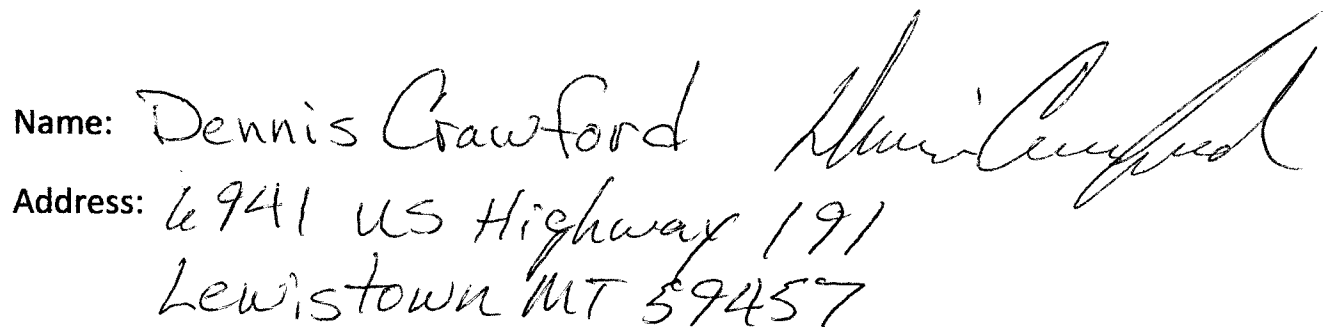 Name: Dennis Crawford Dennis Crawford
Address: 6941 US Highway 191
Lewistown MT 59457